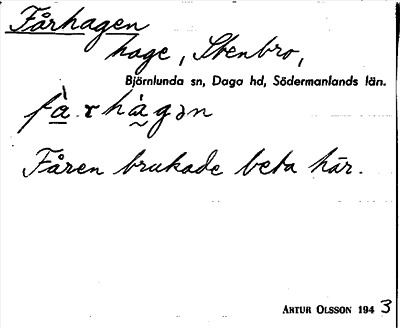 Fårhagen
hage, Stenbro,
Björnlunda sn, Daga hd, Södermanlands län.
fà̱.rhà̰gən
Fåren brukade beta här.
ARTUR OLSSON 1943